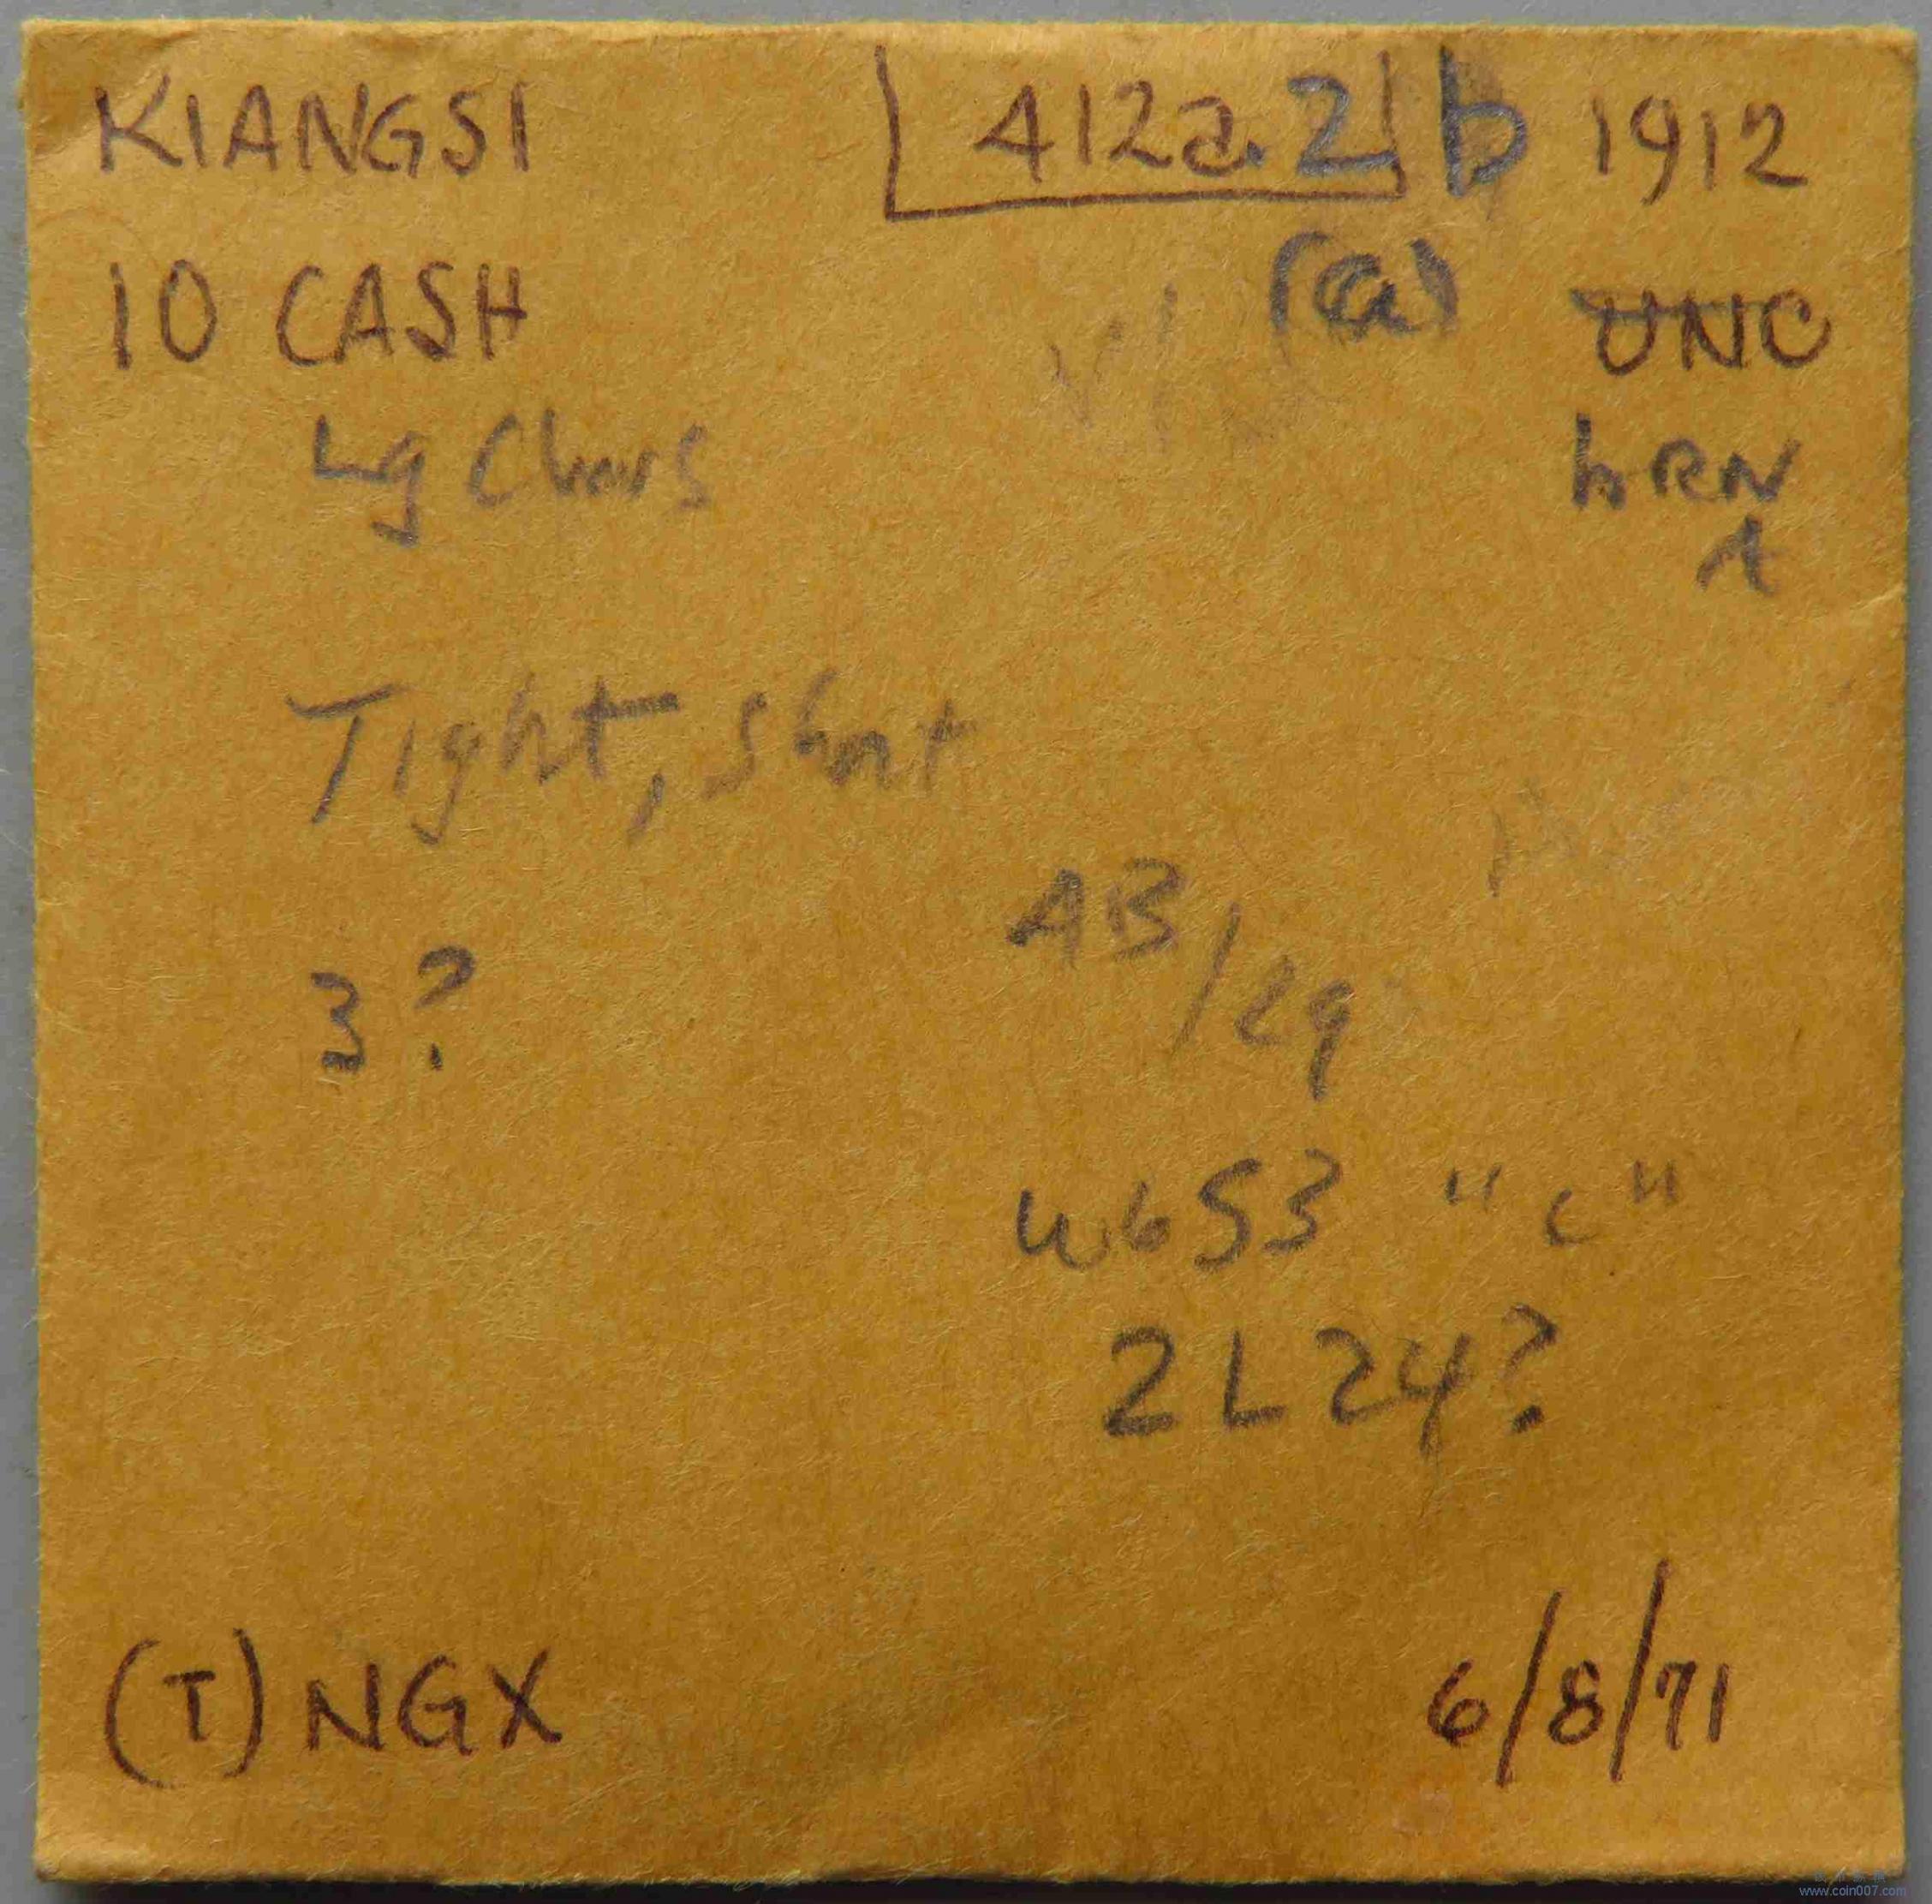 KIANGSI 412a.2 b 1912
10 CASH (a) UNC
Lg Chars bRN
Tight, short
AB/29
3?
W653 "c"
2L24?
(T) NGX 6/8/71
www.coin007.com